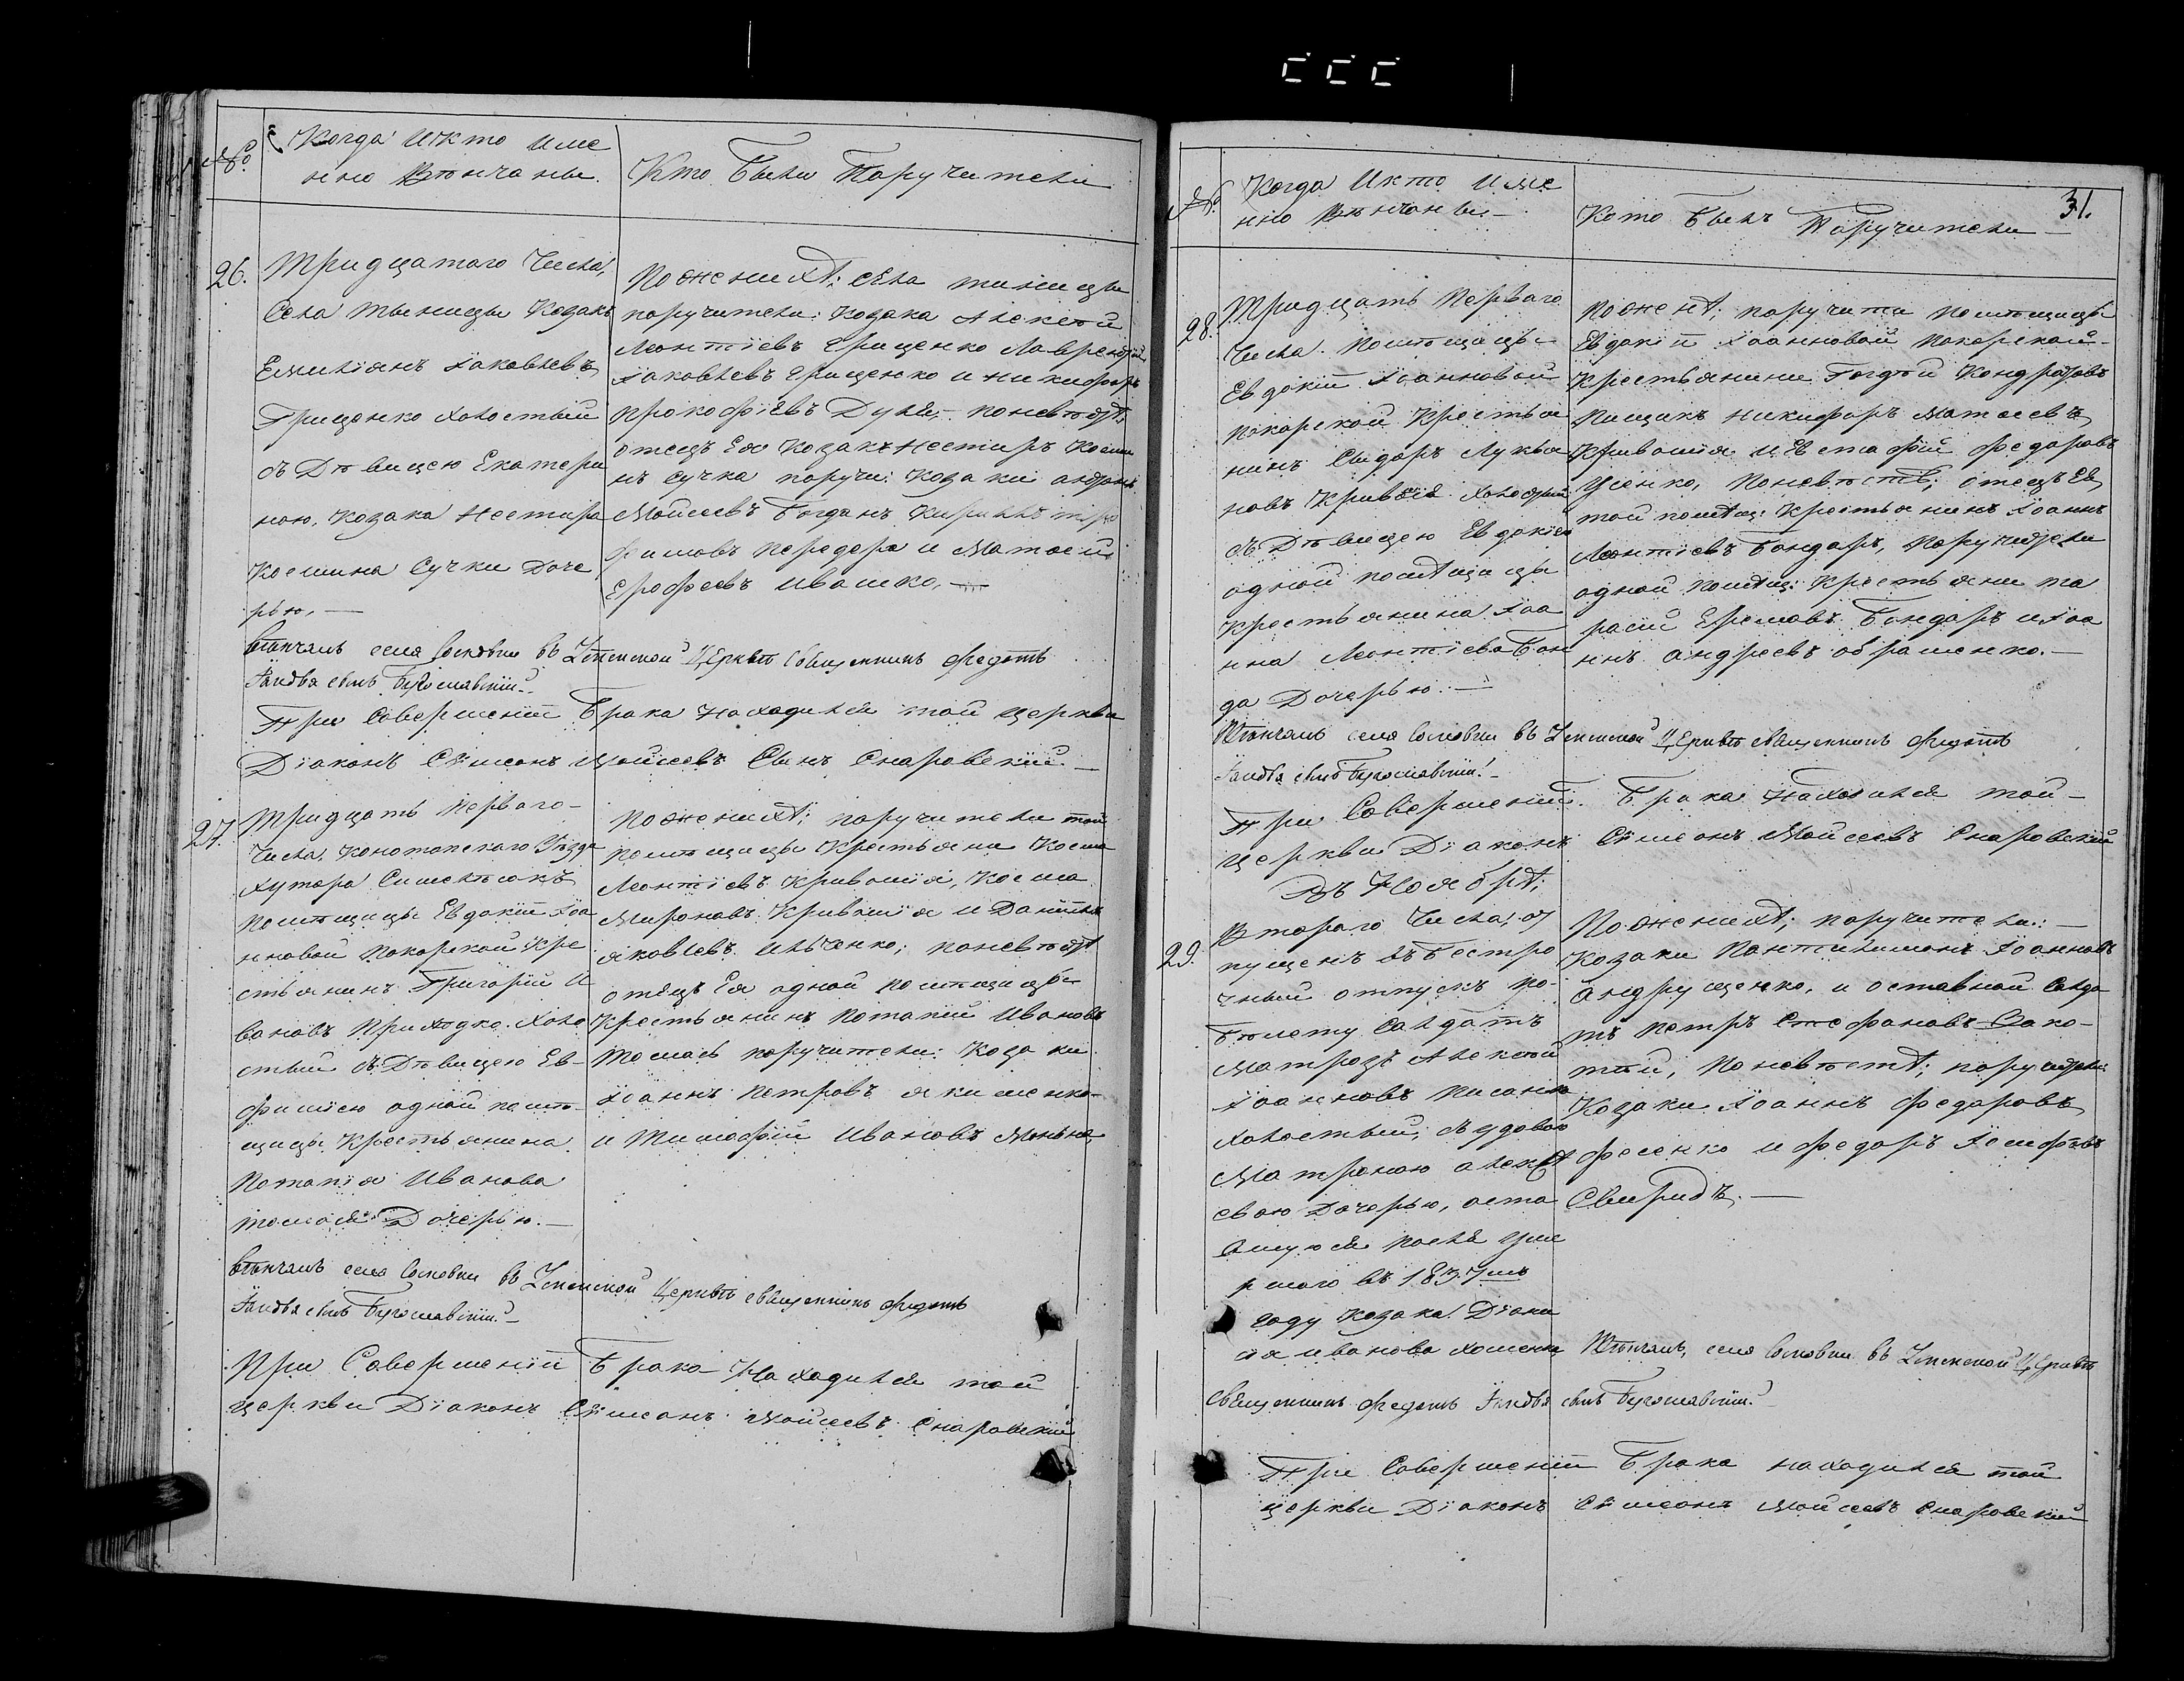 №
Когда И кто име
нно Вѣнчаны.
Кто Были Поручители
26.
Тридцатого Числа,
Села Тыницы Козакъ
Емилiянъ Iаковлевъ
Грищенко холостый
съ Дѣвицею Екатери
ною, Козака Нестира
Космина Сучки Доче
рью. —
По женихѣ: села тиницы
поручители: Козака Алексѣй
Леонтiевъ Грищенко Лаврентiй
Iаковлевъ Грищенко и Никифоръ
Прокофiевъ Дуля, — поневѣстѣ,
отецъ Ея Козакъ Нестиръ Косми
нъ Сучка поручи: Козаки андрей
Мойсеевъ Богданъ Кириллъ тро
фимовъ Передера и Матвей
Ерофеевъ Ивашко, —
Вѣнчалъ села Сосновки въ Успенской Церквѣ Священникъ Федотъ
Iаковлевъ сынъ Богославскiй. —
При Совершенiи Брака Находился той церкви
Дiаконъ Сѵмеонъ Мойсеевъ Сынъ Снаровскiй. —
27.
Тридцать Перваго —
Числа, Конотопскаго Уѣзда
Хутора
Помѣщицы Евдокiи Iоа
нновой Покорской Кре
стьянинъ Григорiй И
вановъ Приходко. Холо
стый съ Дѣвицею Ев-
фимiею одной помѣ-
щицы Крестьянина
Потапiя Иванова
Дочерью. —
По женихѣ; поручители той
помѣщицы Крестьяни Косма
Леонтiевъ Кривошiя, Косма
Мироновъ Кривошiя и Данiилъ
яковлевъ Ильченко; поневѣстѣ
отецъ Ея одной помѣщицы
Крестьянинъ Потапiй Ивановъ
поручители: Козаки
Iоаннъ Петровъ якименко —
и Тимофiй Ивановъ
Вѣнчалъ села Сосновки въ Успенской Церквѣ священникъ Федотъ
Iаковлевъ сынъ Богославскiй. —
При Совершенiи Брака Находился той
церкви Дiаконъ Сѵмеонъ Мойсеевъ Снаровскiй
№
Когда И кто име
нно Вѣнчаны —
Кото Былъ Поручители —
31.
28.
Тридцать Перваго
Числа. Помѣщицы
Евдокiи Iоанновой
Покорской Крестья
нинъ Сидоръ Лукья
новъ Кривошiя холостый
съ Дѣвицею Евдокiею
одной помѣщицы
Крестьянина Iоа
нна Леонтiева Бон
да Дочерью. —
Поженѣ, поручити помѣщицы
Евдокiи Iоанновой Покорской —
Крестьянини Гордѣй Кондратовъ
Пищикъ Никифоръ Матвеевъ
Кривошiя и Евстафiй федоровъ
Усенко, Поневѣстѣ; отецъ Ея
той помѣщ: Крестьянинъ Iоаннъ
Леонтiевъ Бондаръ, поручители
одной помѣщ: Крестьяни та
расiй Ермовъ Бондаръ и Iоа
ннъ андреевъ обрашенко. —
Вѣнчалъ села Сосновки въ Успенской Церквѣ священникъ Федотъ
Iаковлевъ сынъ Богославскiй. —
При Совершенiи Брака Находился той —
церкви Дiаконъ Сѵмеонъ Мойсеевъ Снаровскiй
Въ Ноябрѣ;
29.
Втораго Числа, от
пущенъ въ Бестро
чный отпускъ по-
билету Салдатъ
матрозъ Алексей
Iоанновъ Писанко
Холостый, съ удовою
Матроною алексѣ
евою Дочерью, оста
вшуюся после уме
ршого въ 1837мъ
году Козака Дiони
сiя иванова хоменка
По женихѣ; поручители: —
Козаки Пантилимонъ Iоанновъ
андрущенко, и оставной Салда
тъ Петръ Стефановъ Зако-
тнiй, Поневѣстѣ; поручители:
Козаки Iоаннъ федоровъ
фесенко и федоръ Iосифовъ
Свиридъ. —
Вѣнчалъ, села Сосновки въ Успенской Церквѣ
Священникъ Федотъ Iаковлевъ сынъ Богославскiй.
При Совершенiи Брака находился той
церкви Дiаконъ Сѵмеонъ Мойсеевъ Снаровскiй